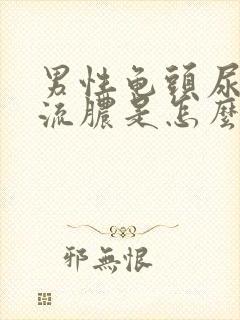 男性龟頭尿
流膿是怎麼
邪無恨